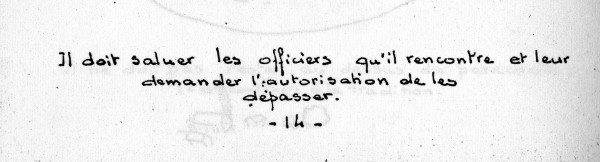 Il doit saluer les officiers qu'il rencontre et leur
demander l'autorisation de les
dépasser.
- 14 -